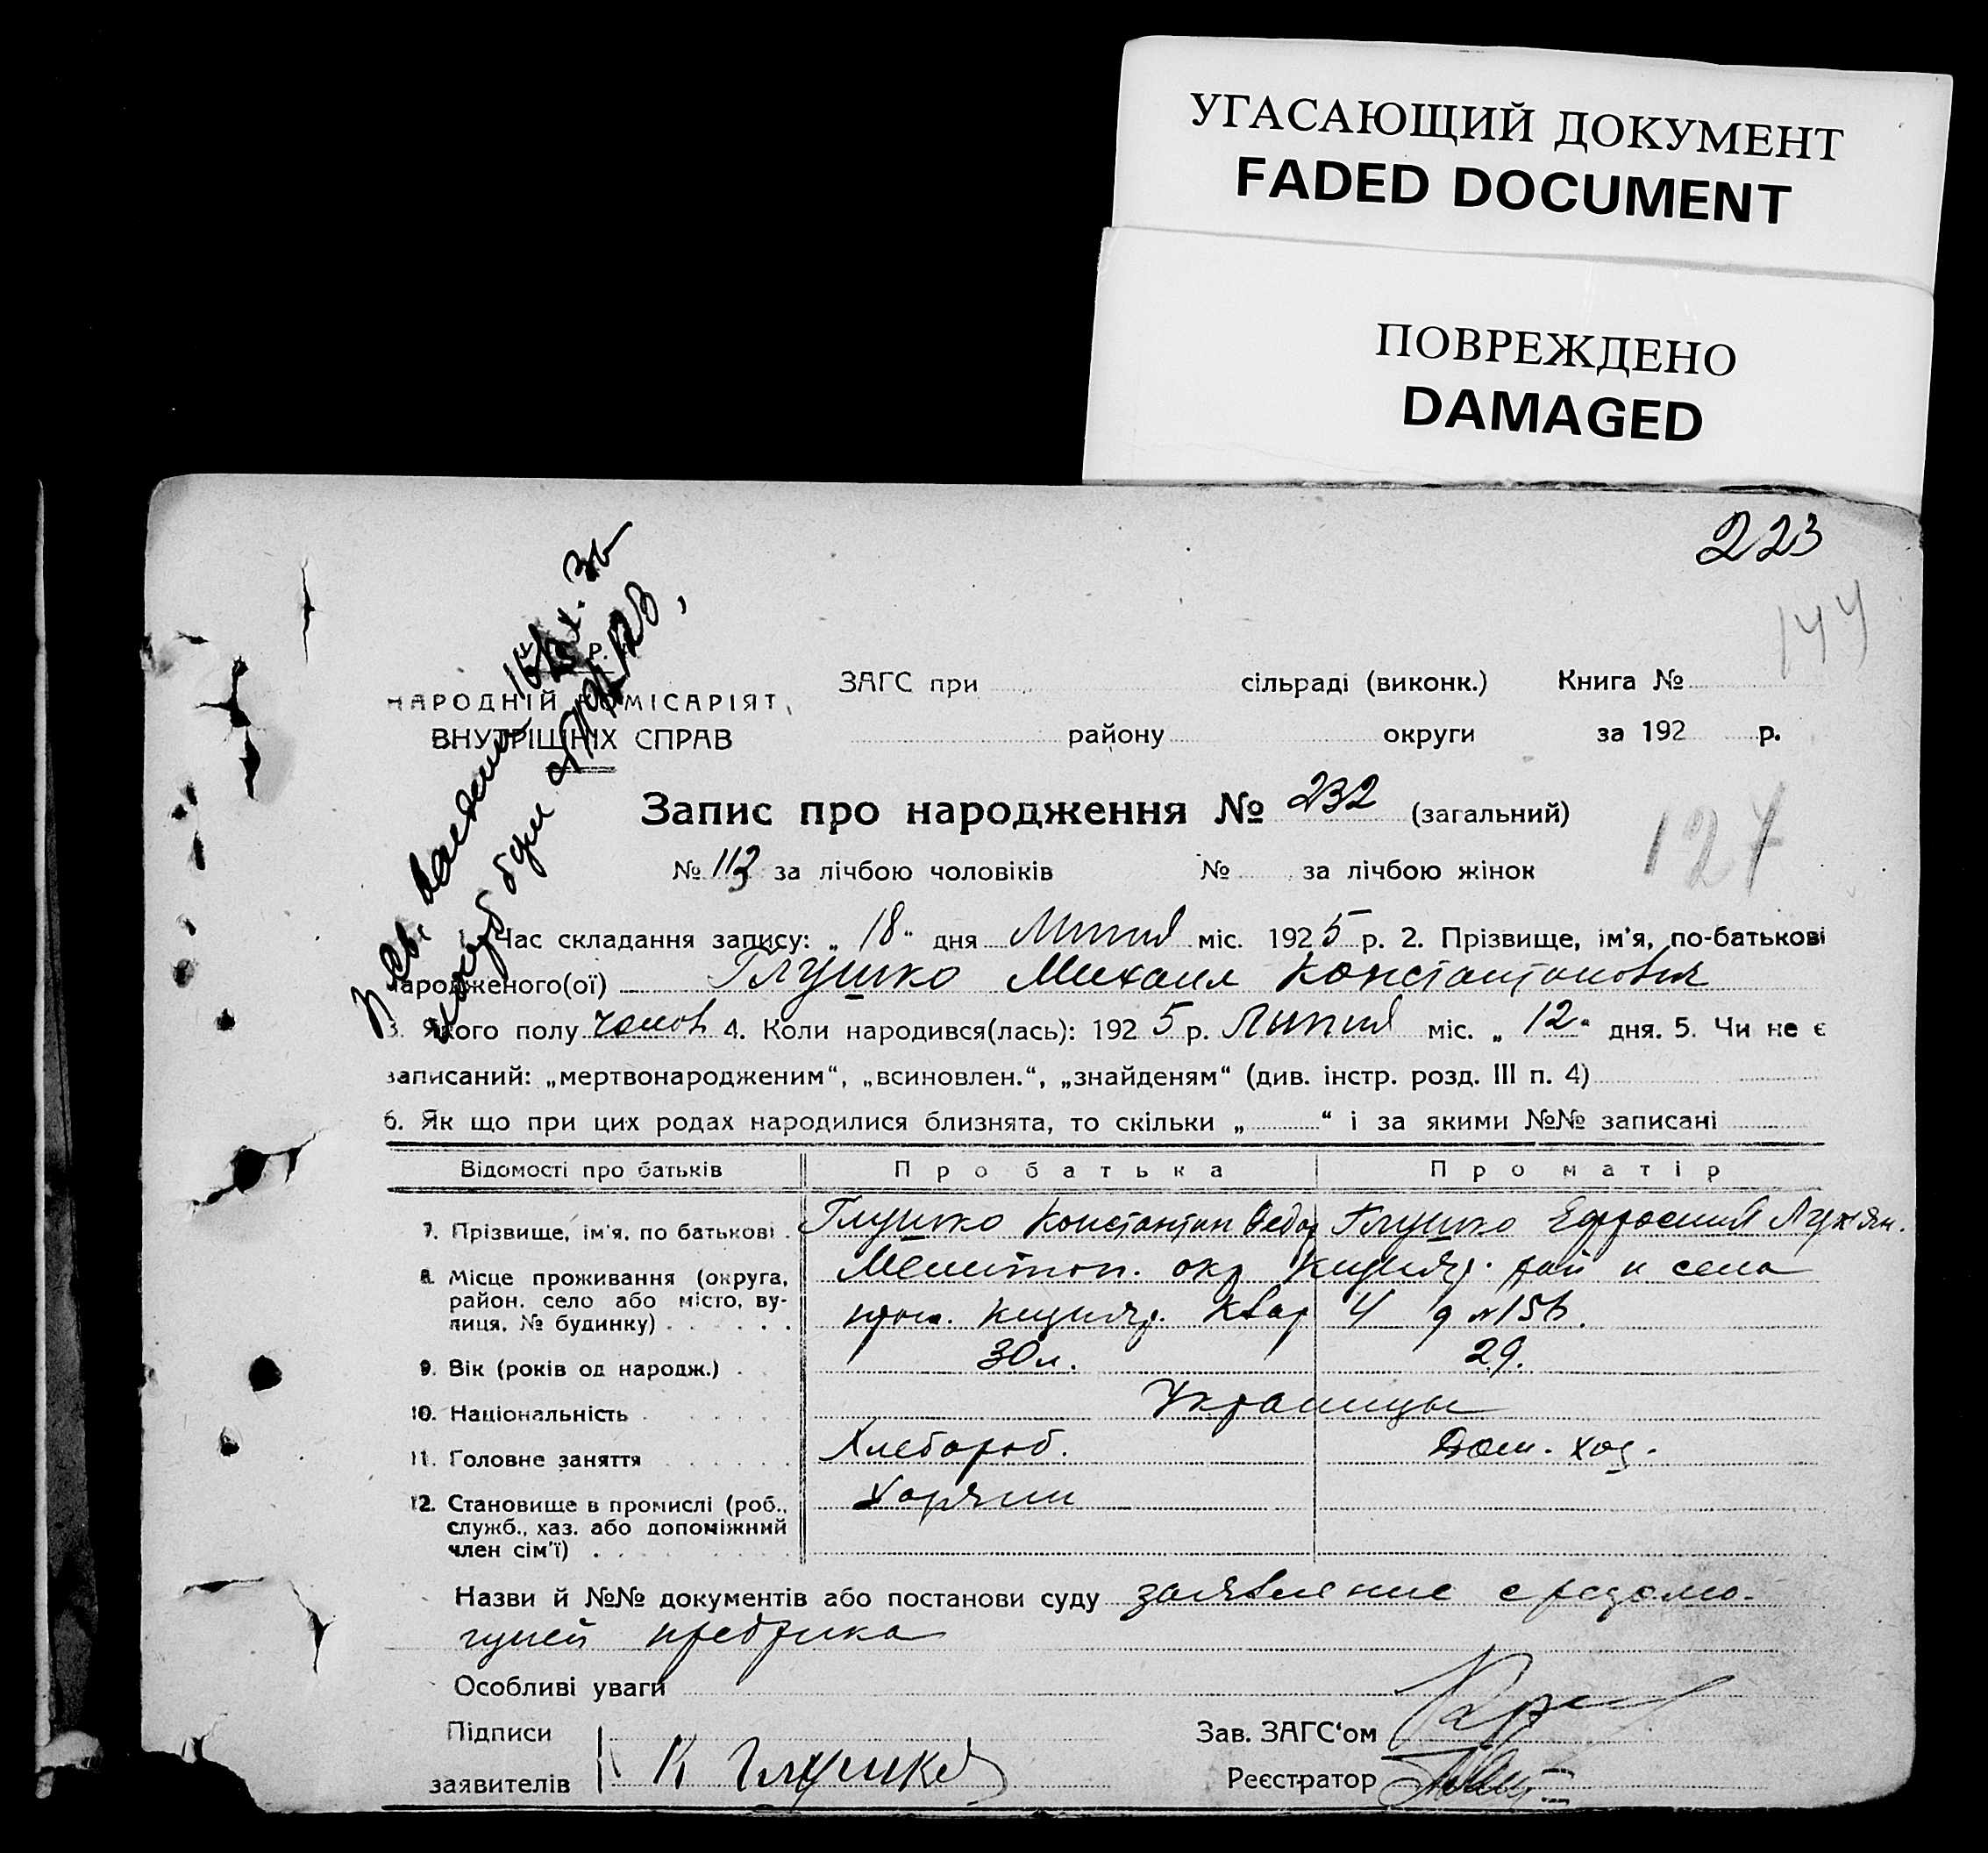 УГАСАЮЩИЙ ДОКУМЕНТ
FADED DOCUMENT
ПОВРЕЖДЕНО
DAMAGED
223
144
НАРОДНІЙ КОМІСАРІЯТ
ВНУТРІШНІХ СПРАВ
ЗАГС при сільраді (виконк.) Книга №
району округи за 192 р.
Запис про народження № 232 (загальний)
127
№ 113 за лічбою чоловіків № за лічбою жінок
1. Час складання запису: „ 18 “ дня Липня міс. 1925 р. 2. Прізвище, ім'я, по-батькові
народженого(ої) Глушко Михаил Константинович
3. Якого полу челов. 4. Коли народився(лась): 1925 р. Липня міс. „ 12 “ дня. 5. Чи не є
записаний: „мертвонародженим“, „всиновлен.“, „знайденям“ (див. інстр. розд. III п. 4)
6. Як що при цих родах народилися близнята, то скільки „ “ і за якими №№ записані
Відомості про батьків Про батька Про матір
7. Прізвище, ім'я, по батькові . Глушко Константин Федор Глушко Ефросиния Лукян.
8. Місце проживання (округа, Мелитоп. окр. рай и село
район, село або місто, ву-
лиця, № будинку) . . . . . Квар 4 д №156.
9. Вік (років од народж.) . 30 л. 29.
10. Національність Украинцы
11. Головне заняття Хлебороб. Дом. хоз.
12. Становище в промислі (роб.,
служб., хаз. або допоміжний
член сім'ї) .
Назви й №№ документів або постанови суду заявление с резолю-
цией
Особливі уваги
Підписи Зав. ЗАГС‘ом
заявителів К Глушко Реєстратор